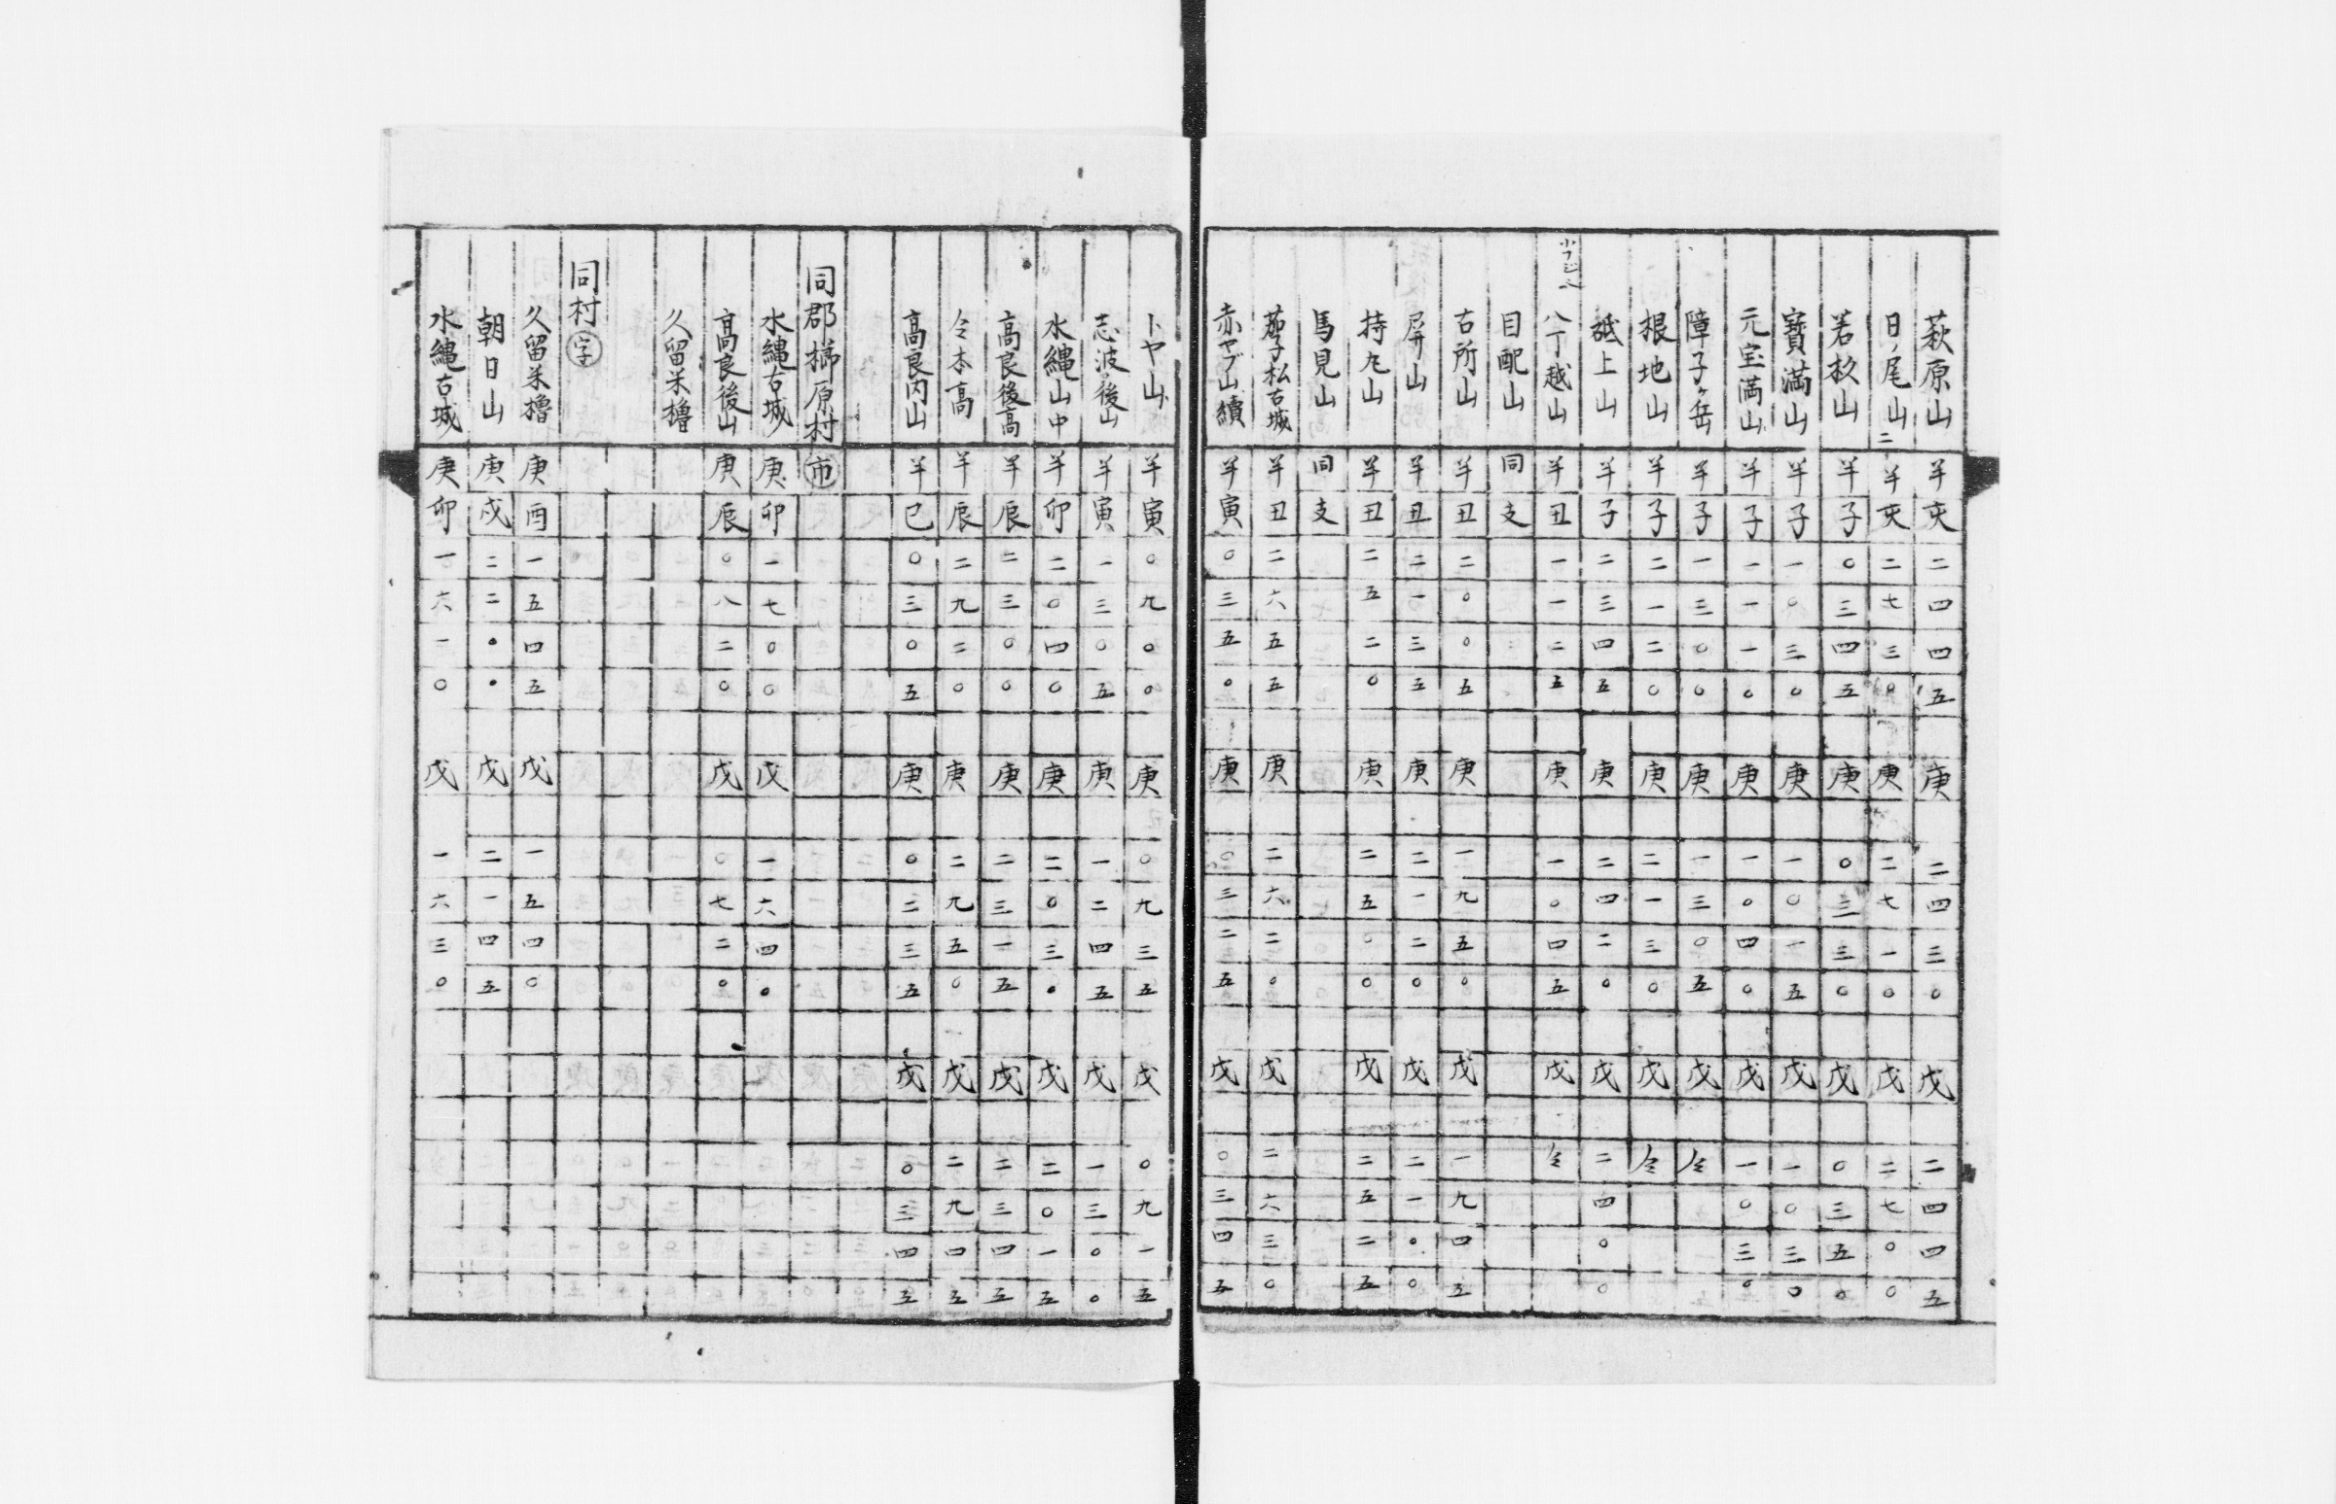 萩原山 羊亥 二四四五 庚 二四三〇 戊 二四四五
日ノ尾山 二 羊亥 二七三〇 庚 二七一〇 戊 二七〇〇
若杦山 羊子 〇三四五 庚 〇三三〇 戊 〇三五〇
寶満山 羊子 一〇三〇 庚 一〇一五 戊 一〇三〇
元宝満山 羊子 一一一〇 庚 一〇四〇 戊 一〇三〇
障子ヶ岳 羊子 一三〇〇 庚 一三〇五 戊 仝
根地山 羊子 二一二〇 庚 二一三〇 戊 仝
砥上山 羊子 二三四五 庚 二四二〇 戊 二四〇〇
八丁越山 羊丑 一一二五 庚 一〇四五 戊 仝
目配山 同支
古所山 羊丑 二〇〇五 庚 一九五〇 戊 一九四五
屏山 羊丑 二一三五 庚 二一二〇 戊 二一〇〇
持丸山 羊丑 二五二〇 庚 二五〇〇 戊 二五二五
馬見山 同支
茄子松古城 羊丑 二六五五 庚 二六二〇 戊 二六三〇
赤ヤブ山續 羊寅 〇三五〇 庚 〇三二五 戊 〇三四五
トヤ山 羊寅 〇九〇〇 庚 〇九三五 戊 〇九一五
志波後山 羊寅 一三〇五 庚 一二四五 戊 一三〇〇
水縄山中 羊卯 二〇四〇 庚 二〇三〇 戊 二〇一五
高良後高 羊辰 二三〇〇 庚 二三一五 戊 二三四五
仝本高 羊辰 二九二〇 庚 二九五〇 戊 二九四五
高良内山 羊巳 〇三〇五 庚 〇三三五 戊 〇三四五
同郡梯原村 市
水縄古城 庚卯 一七〇〇 戊 一六四〇
高良後山 庚辰 〇八二〇 戊 〇七二〇
久留米櫓
同村 字
久留米櫓 庚酉 一五四五 戊 一五四〇
朝日山 庚戌 二二〇〇 戊 二一四五
水縄古城 庚卯 一六一〇 戊 一六三〇